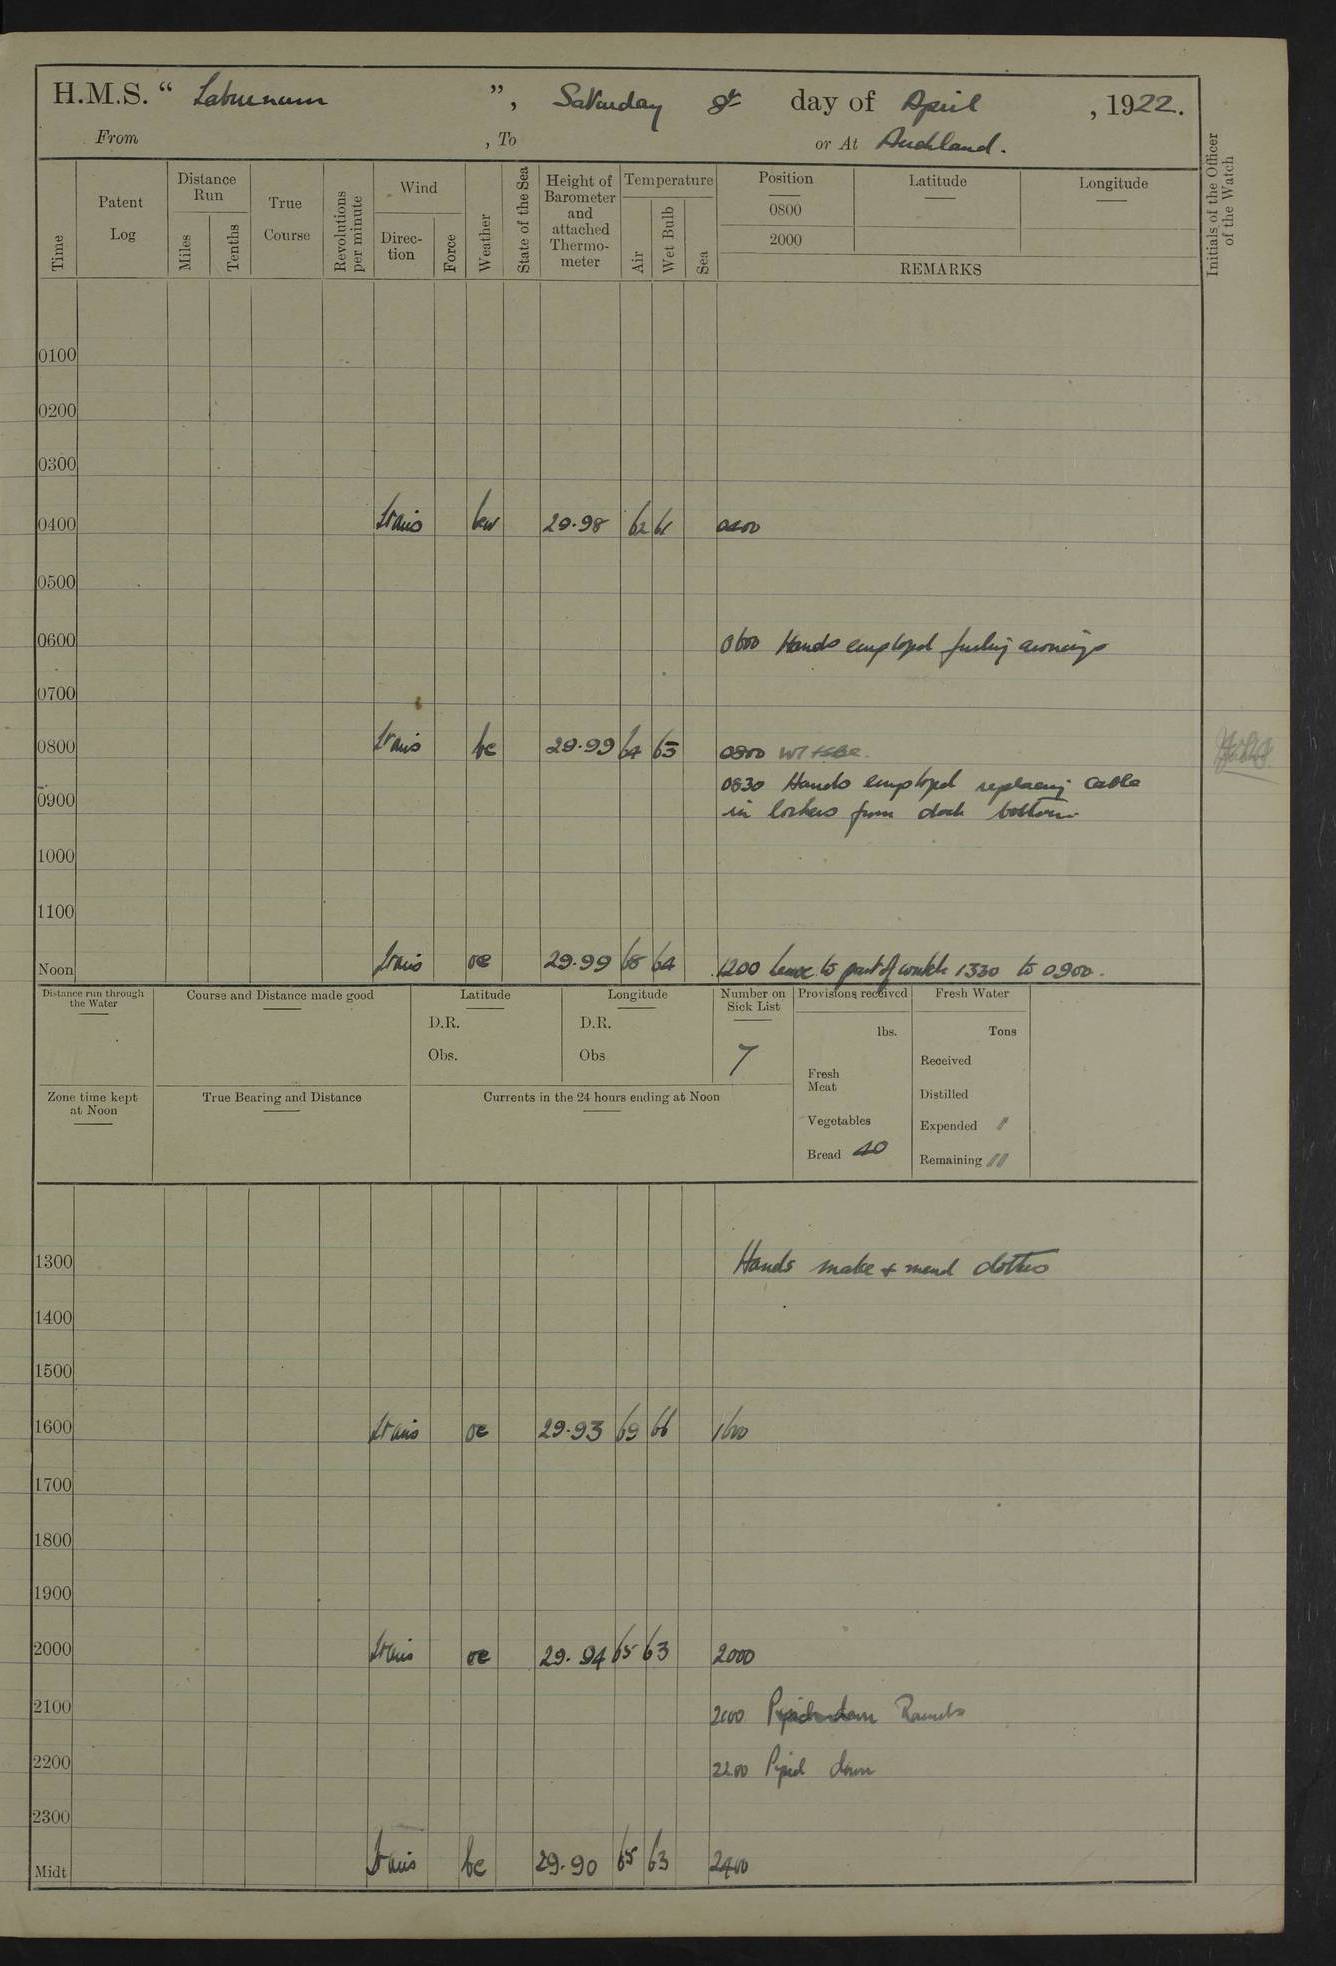 H.M.S. “ Laburnum ”, Saturday 8th day of April , 1922.
From , To or At Auckland.
Time
Patent Log
Distance Run
Miles
Tenths
True Course
Revolutions per minute
Wind
Direc-tion
Force
Weather
State of the Sea
Height of Barometer and attached Thermo-meter
Temperature
Air
Wet Bulb
Sea
Position
0800
2000
Latitude
Longitude
REMARKS
Initials of the Officer of the Watch
0100
0200
0300
0400 bw 29.98 62 61 0400
0500
0600 0600 Hands employed furling awnings
0700
0800 bc 29.99 64 63 0800
0830 Hands employed replacing cable
0900 in lockers from dock bottom
1000
1100
Noon oc 29.99 68 64 1200 Leave to part of watch 1330 to 0900.
Distance run through the Water
Course and Distance made good
Latitude
D.R.
Obs.
Longitude
D.R.
Obs
Number on Sick List
7
Provisions received
lbs.
Fresh Meat
Vegetables
Bread 40
Fresh Water
Tons
Received
Distilled
Expended
Remaining
Zone time kept at Noon
True Bearing and Distance
Currents in the 24 hours ending at Noon
1300 Hands make & mend clothes
1400
1500
1600 oc 29.93 69 66 1600
1700
1800
1900
2000 oc 29.94 65 63 2000
2100 Rounds
2200 2200 Piped down
2300
Midt bc 29.90 65 63 2400